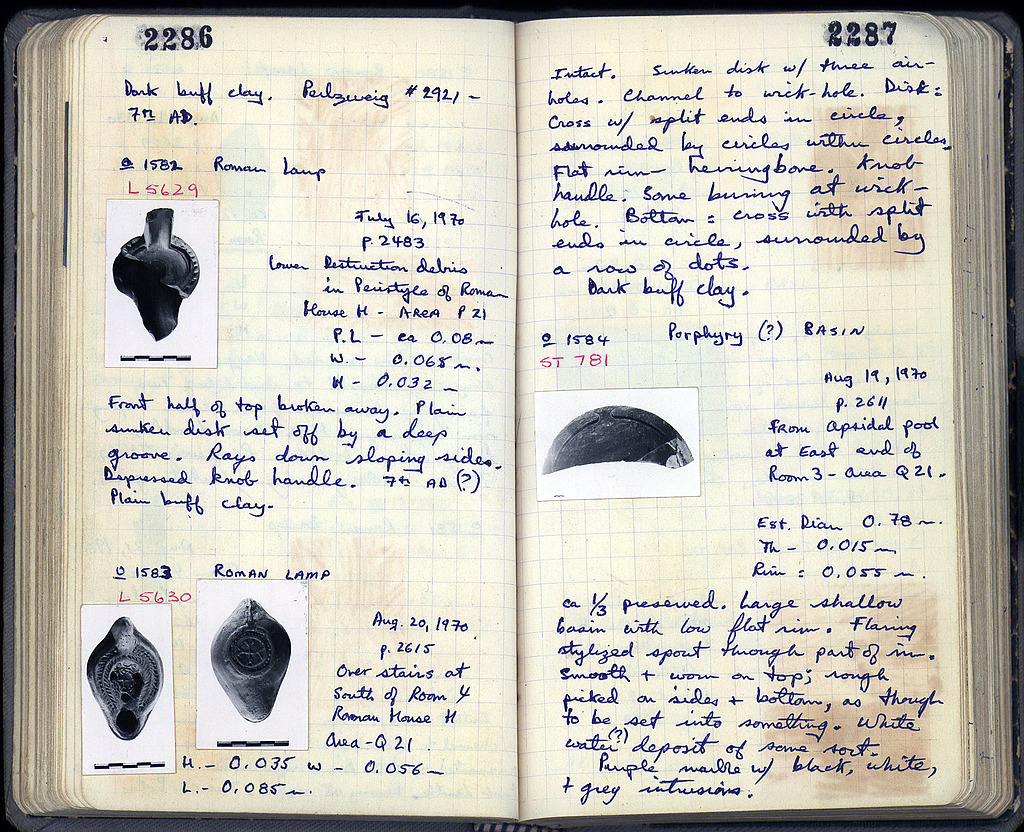 2286
Dark buff clay. Perlzweig # 2921 -
7th AD.
o 1582 Roman Lamp
L 5629
July 16, 1970
p. 2483
Lower Destruction debris
in Peristyle of Roman
House H - AREA P 21
P.L - ca 0.08 m
W. - 0.065 m.
H - 0.032 m
Front half of top broken away. Plain
sunken disk set off by a deep
groove. Rays down sloping sides.
Depressed knob handle. 7th AD (?)
Plain buff clay.
o 1583 ROMAN LAMP
L 5630
Aug. 20, 1970
p. 2615
Over stairs at
South of Room 4
Roman House H
Area - Q 21.
H. - 0.035 W - 0.056 m
L. - 0.085 m.
2287
Intact. Sunken disk w/ three air-
holes. Channel to wick-hole. Disk:
Cross w/ split ends in circle,
surrounded by circles within circles.
Flat rim - herringbone. Knob
handle. Some burning at wick-
hole. Bottom: cross with split
ends in circle, surrounded by
a row of dots.
Dark buff clay.
o 1584 Porphyry (?) BASIN
ST 781
Aug 19, 1970
p. 2611
From Apsidal pool
at East end of
Room 3 - Area Q 21.
Est. Diam 0.78 m.
Th - 0.015 m
Rim: 0.055 m.
ca 1/3 preserved. Large shallow
basin with low flat rim. Flaring
stylized spout through part of rim.
Smooth + worn on top; rough
picked on sides + bottom, as though
to be set into something. White
water (?) deposit of some sort.
Purple marble w/ black, white,
+ grey intrusions.